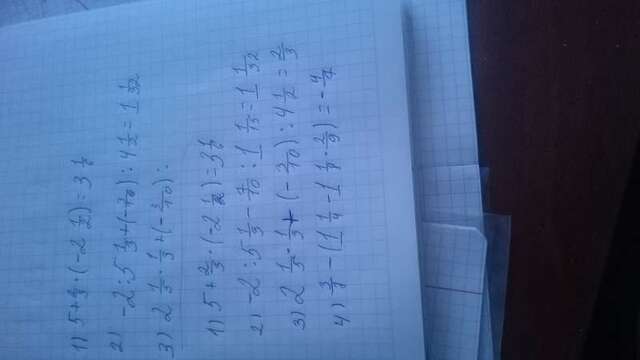 1) 5+2/3·(-2 1/2)=3 1/6
2) -2:5 1/3+(-7/10):4 1/2=1 1/32
3) 2 1/3·1/3+(-3/10):
1) 5+2/3·(-2 1/2)=3 1/6
2) -2:5 1/3-7/10:1 1/15=1 1/32
3) 2 1/3·1/3+(-3/10):4 1/2=2/3
4) 3/7-(1 1/4-1 1/7·2/9)=-4/7